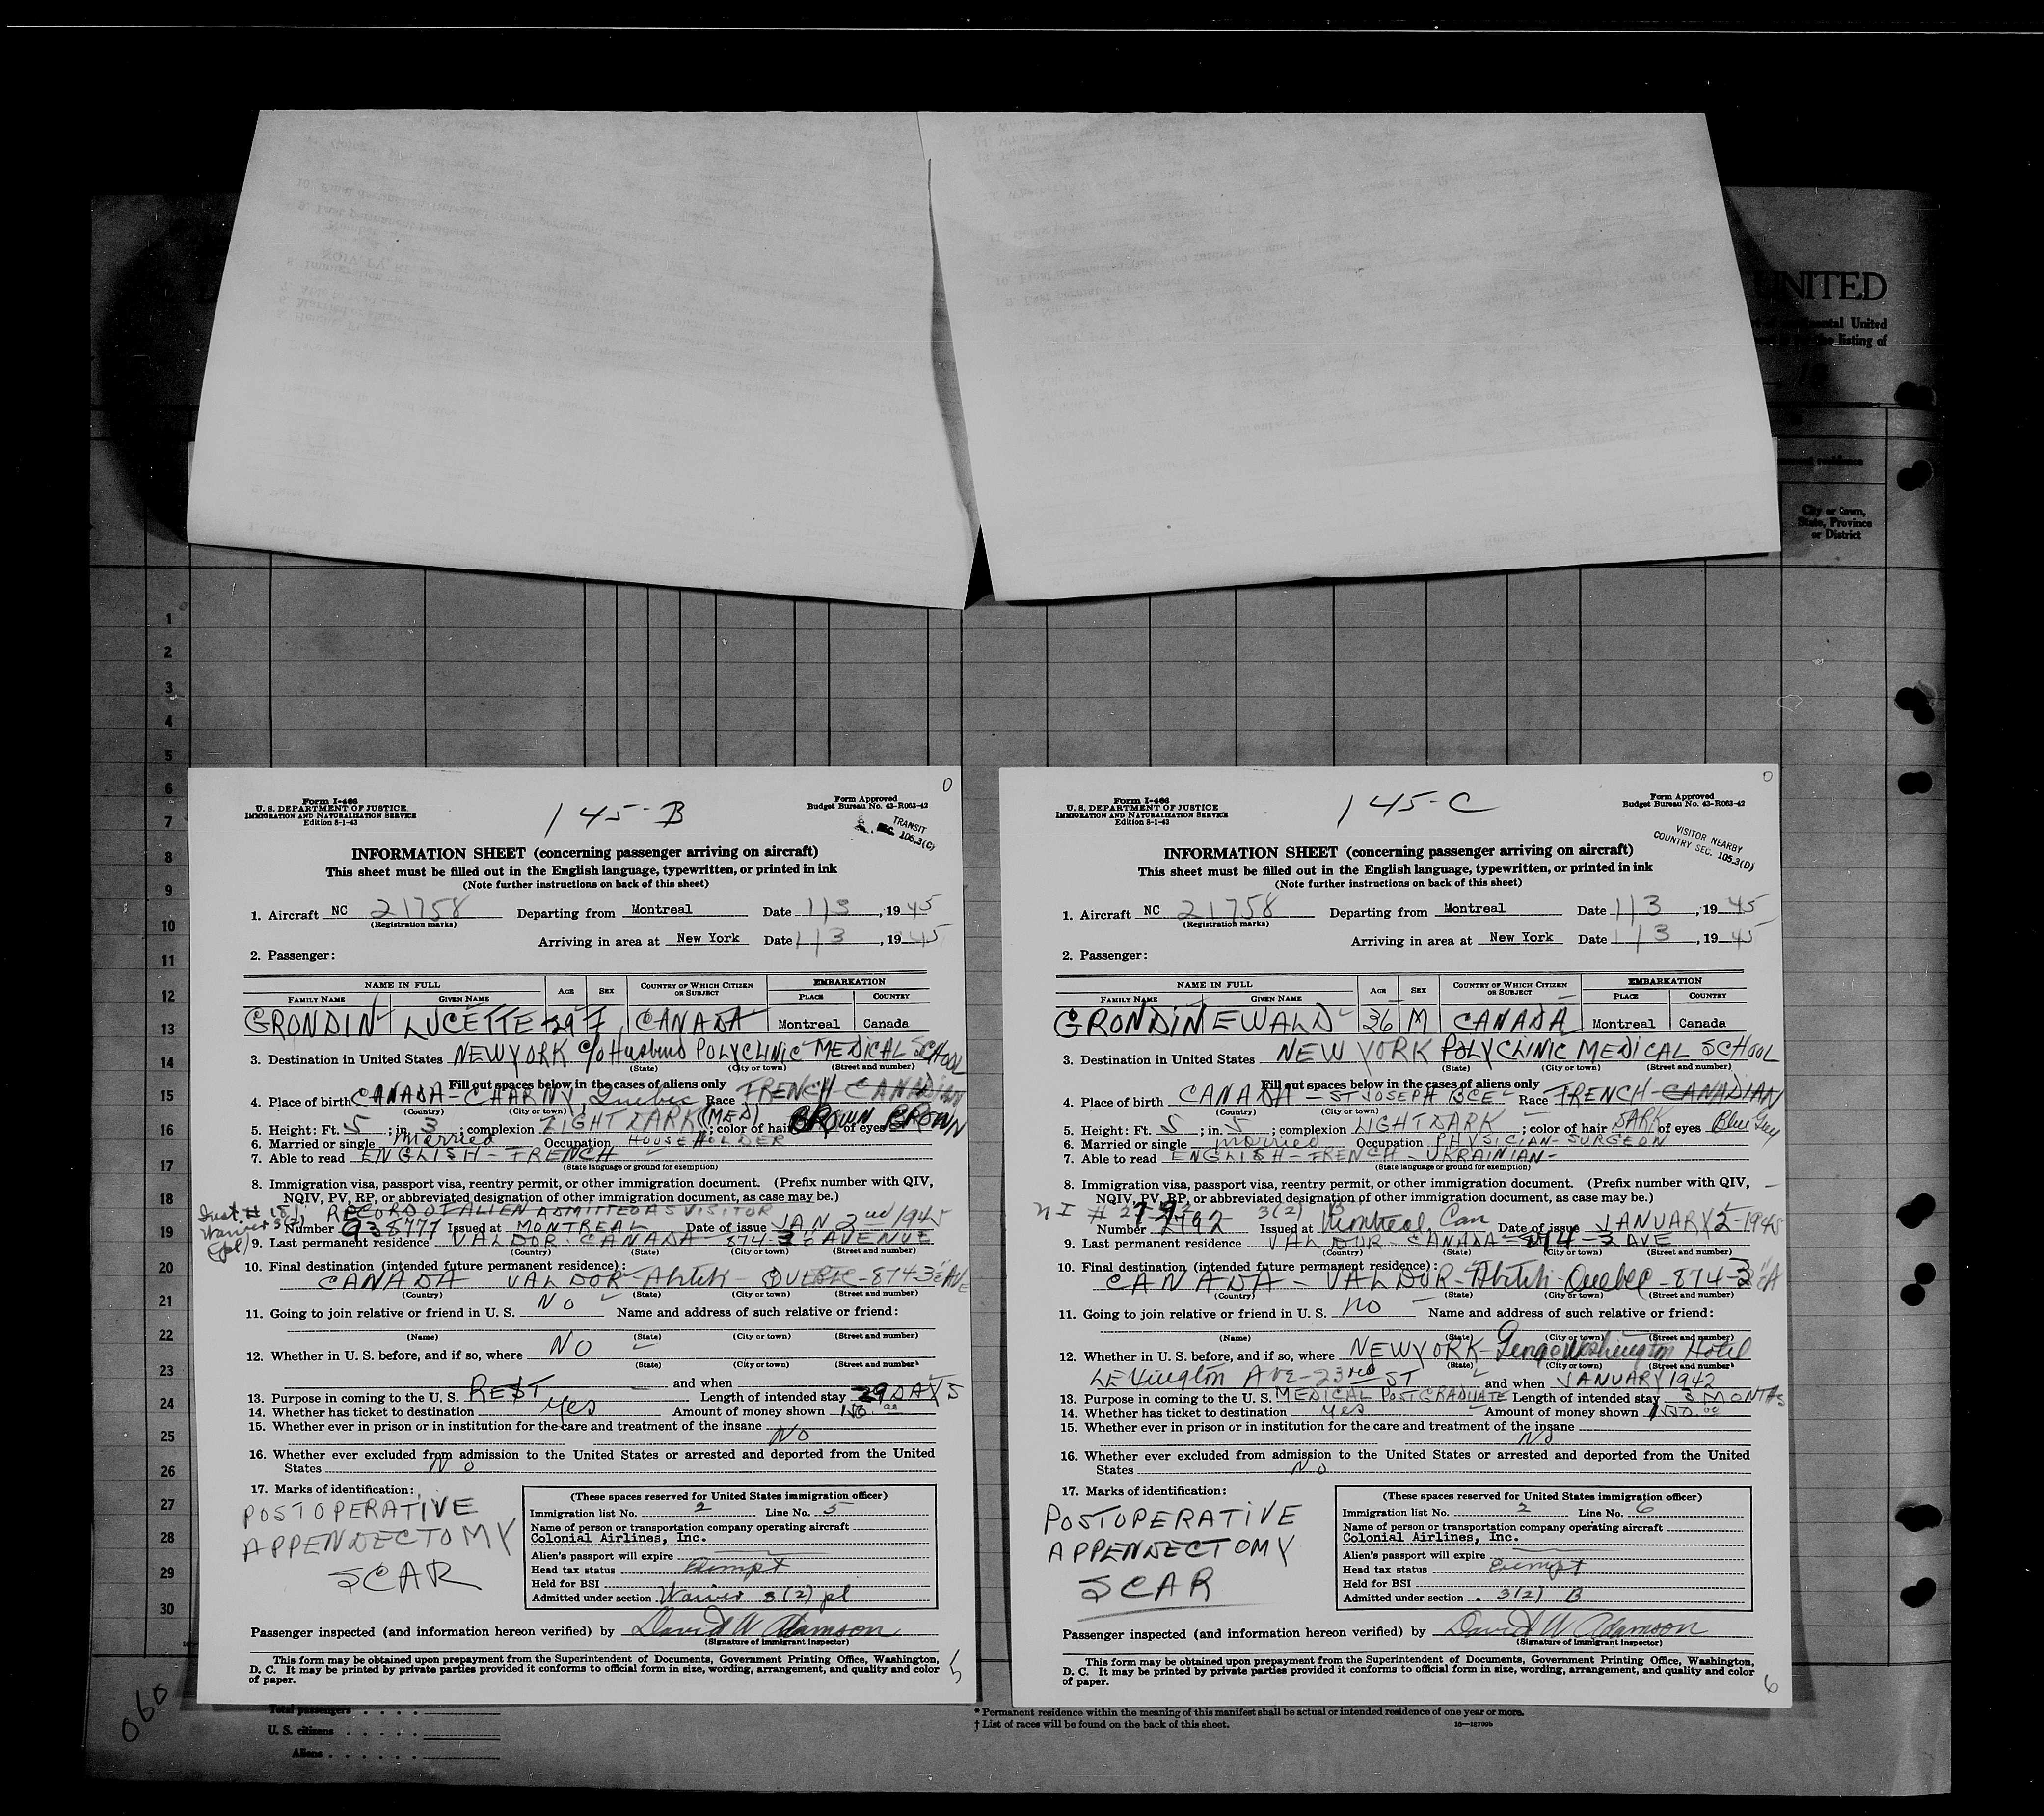 UNITED
City or town,
State, Province
or District
1
2
3
4
5
6
7
8
9
10
11
12
13
14
15
16
17
18
19
20
21
22
23
24
25
26
27
28
29
30
Form I-466
U. S. DEPARTMENT OF JUSTICE
IMMIGRATION AND NATURALIZATION SERVICE
Edition 8-1-43
145-B
Form Approved
Budget Bureau No. 43-R063-42
0
TRANSIT
SEC. 105.3(C)
INFORMATION SHEET (concerning passenger arriving on aircraft)
This sheet must be filled out in the English language, typewritten, or printed in ink
(Note further instructions on back of this sheet)
1. Aircraft NC 21758 Departing from Montreal Date 1/3, 1945
(Registration marks)
Arriving in area at New York Date 1/3, 1945
2. Passenger:
NAME IN FULL AGE SEX COUNTRY OF WHICH CITIZEN OR SUBJECT EMBARKATION
FAMILY NAME GIVEN NAME PLACE COUNTRY
GRONDIN LUCETTE 29 F CANADA Montreal Canada
3. Destination in United States NEW YORK c/o Husband POLYCLINIC MEDICAL SCHOOL
(State) (City or town) (Street and number)
Fill out spaces below in the cases of aliens only
4. Place of birth CANADA - CHARNY, Quebec Race FRENCH-CANADIAN
(Country) (City or town)
5. Height: Ft. 5; in. 3; complexion LIGHT DARK (MED); color of hair BROWN of eyes BROWN
6. Married or single Married Occupation HOUSEHOLDER
7. Able to read ENGLISH - FRENCH
(State language or ground for exemption)
8. Immigration visa, passport visa, reentry permit, or other immigration document. (Prefix number with QIV,
NQIV, PV, RP, or abbreviated designation of other immigration document, as case may be.)
RECORD OF ALIEN ADMITTED AS VISITOR
Number 938777 Issued at MONTREAL Date of issue JAN 2nd 1945
9. Last permanent residence VALDOR - CANADA 874-3e AVENUE
(Country) (State) (City or town) (Street and number)
10. Final destination (intended future permanent residence):
CANADA VAL DOR - Abitibi - QUEBEC - 874-3e AVE
(Country) (State) (City or town) (Street and number)
11. Going to join relative or friend in U. S. No Name and address of such relative or friend:
(Name) (State) (City or town) (Street and number)
12. Whether in U. S. before, and if so, where NO
(State) (City or town) (Street and number)
and when
13. Purpose in coming to the U. S. REST Length of intended stay 29 DAYS
14. Whether has ticket to destination Yes Amount of money shown 150.00
15. Whether ever in prison or in institution for the care and treatment of the insane No
16. Whether ever excluded from admission to the United States or arrested and deported from the United
States No
17. Marks of identification:
POSTOPERATIVE
APPENDECTOMY
SCAR
(These spaces reserved for United States immigration officer)
Immigration list No. 2 Line No. 5
Name of person or transportation company operating aircraft
Colonial Airlines, Inc.
Alien's passport will expire
Head tax status Exempt
Held for BSI
Admitted under section Waiver 3(2) pl
Passenger inspected (and information hereon verified) by David W Adamson
(Signature of immigrant inspector)
This form may be obtained upon prepayment from the Superintendent of Documents, Government Printing Office, Washington,
D. C. It may be printed by private parties provided it conforms to official form in size, wording, arrangement, and quality and color
of paper.
5
Form I-466
U. S. DEPARTMENT OF JUSTICE
IMMIGRATION AND NATURALIZATION SERVICE
Edition 8-1-43
145-C
Form Approved
Budget Bureau No. 43-R063-42
0
VISITOR NEARBY
COUNTRY SEC. 105.3(D)
INFORMATION SHEET (concerning passenger arriving on aircraft)
This sheet must be filled out in the English language, typewritten, or printed in ink
(Note further instructions on back of this sheet)
1. Aircraft NC 21758 Departing from Montreal Date 1/3, 1945
(Registration marks)
Arriving in area at New York Date 1/3, 1945
2. Passenger:
NAME IN FULL AGE SEX COUNTRY OF WHICH CITIZEN OR SUBJECT EMBARKATION
FAMILY NAME GIVEN NAME PLACE COUNTRY
GRONDIN EWALD 36 M CANADA Montreal Canada
3. Destination in United States NEW YORK POLYCLINIC MEDICAL SCHOOL
(State) (City or town) (Street and number)
Fill out spaces below in the cases of aliens only
4. Place of birth CANADA - ST JOSEPH BCE Race FRENCH-CANADIAN
(Country) (City or town)
5. Height: Ft. 5; in. 5; complexion LIGHT DARK; color of hair DARK of eyes Blue Grey
6. Married or single married Occupation PHYSICIAN-SURGEON
7. Able to read ENGLISH - FRENCH - UKRAINIAN-
(State language or ground for exemption)
8. Immigration visa, passport visa, reentry permit, or other immigration document. (Prefix number with QIV,
NQIV, PV, RP, or abbreviated designation of other immigration document, as case may be.)
3(2) B
Number 2792 Issued at Montreal, Can Date of issue JANUARY 2-1945
9. Last permanent residence VAL DOR - CANADA - 874-3 AVE
(Country) (State) (City or town) (Street and number)
10. Final destination (intended future permanent residence):
CANADA - VAL DOR - Abitibi - Quebec - 874-3 A
(Country) (State) (City or town) (Street and number)
11. Going to join relative or friend in U. S. no Name and address of such relative or friend:
(Name) (State) (City or town) (Street and number)
12. Whether in U. S. before, and if so, where NEW YORK - George Washington Hotel
(State) (City or town) (Street and number)
LEXington AVE - 23rd ST and when JANUARY 1942
13. Purpose in coming to the U. S. MEDICAL POSTGRADUATE Length of intended stay 3 MONTHS
14. Whether has ticket to destination yes Amount of money shown 150.00
15. Whether ever in prison or in institution for the care and treatment of the insane
No
16. Whether ever excluded from admission to the United States or arrested and deported from the United
States No
17. Marks of identification:
POSTOPERATIVE
APPENDECTOMY
SCAR
(These spaces reserved for United States immigration officer)
Immigration list No. 2 Line No. 6
Name of person or transportation company operating aircraft
Colonial Airlines, Inc.
Alien's passport will expire
Head tax status Exempt
Held for BSI
Admitted under section 3(2) B
Passenger inspected (and information hereon verified) by David W Adamson
(Signature of immigrant inspector)
This form may be obtained upon prepayment from the Superintendent of Documents, Government Printing Office, Washington,
D. C. It may be printed by private parties provided it conforms to official form in size, wording, arrangement, and quality and color
of paper.
6
060
Total passengers
U. S. citizens
Aliens
* Permanent residence within the meaning of this manifest shall be actual or intended residence of one year or more.
† List of races will be found on the back of this sheet.